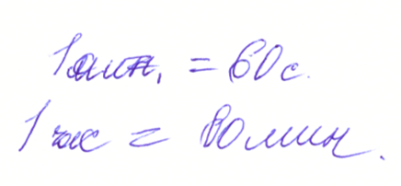 1 мин. = 60 с.
1 час = 60 мин.